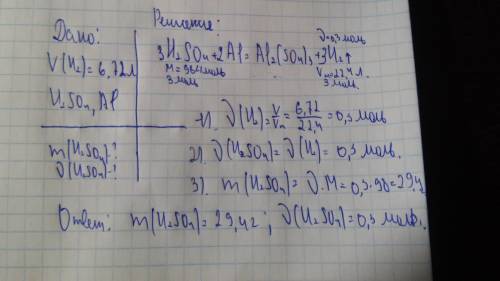 Дано:
V(H₂)=6,72л
H₂SO₄, Al
m(H₂SO₄)-?
ν(H₂SO₄)-?
Решение:
ν=0,3 моль
3H₂SO₄+2Al=Al₂(SO₄)₃+3H₂↑
M=98г/моль Vₘ=22,4 л.
3 моль 3 моль.
1). ν(H₂)=V/Vₘ=6,72/22,4=0,3 моль
2). ν(H₂SO₄)=ν(H₂)=0,3 моль.
3). m(H₂SO₄)=ν·M=0,3·98=29,4
Ответ: m(H₂SO₄)=29,4г; ν(H₂SO₄)=0,3 моль.